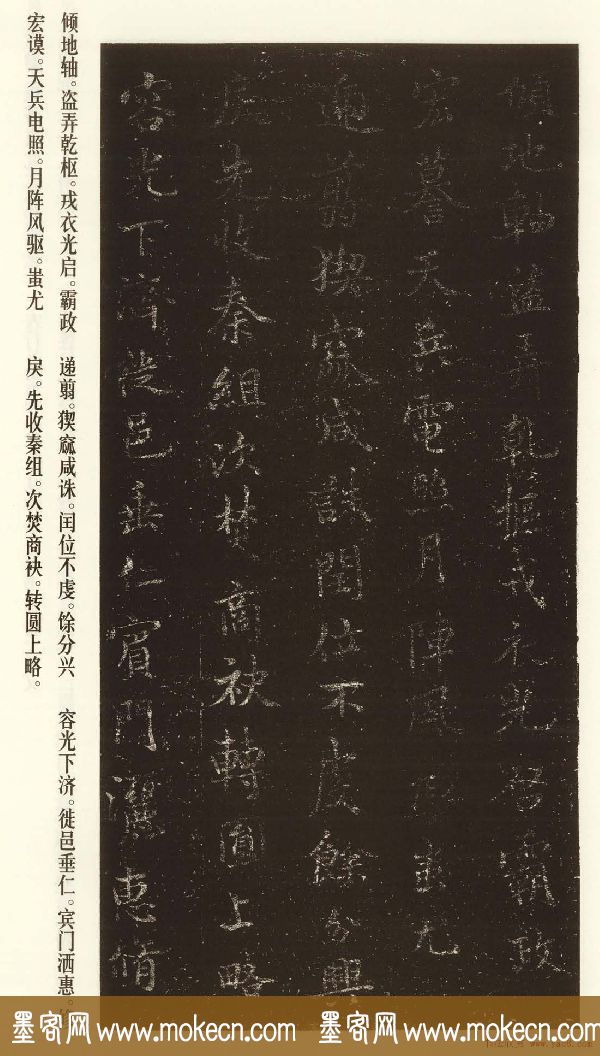 傾地軸盜弄乾樞戎衣光啓霸政
宏謩天兵電照月陣風驅蚩尤
遞翦猰窳咸誅閏位不虔餘分興
戾先收秦組次焚商袂轉圓上略
容光下濟徙邑垂仁賓門灑惠脩
倾地轴。盗弄乾枢。戎衣光启。霸政
宏谟。天兵电照。月阵风驱。蚩尤
递翦。猰窳咸诛。闰位不虔。馀分兴
戾。先收秦组。次焚商袂。转圆上略。
容光下济。徙邑垂仁。宾门洒惠。
墨客网www.mokecn.com 墨客网www.mokecn.com